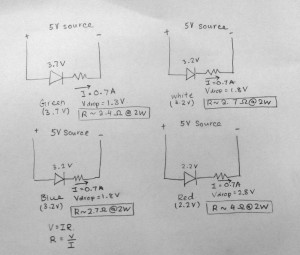 5V source
+ -
3.7V
I=0.7A
Green
(3.7V)
Vdrop=1.3V
R~2.4Ω@2W
5V source
+ -
3.2V
I=0.7A
white
(3.2V)
Vdrop=1.8V
R~2.7Ω@2W
5V source
+ -
3.2V
I=0.7A
Blue
(3.2V)
Vdrop=1.8V
R~2.7Ω@2W
V=IR
R=V/I
5V source
+ -
2.2V
I=0.7A
Red
(2.2V)
Vdrop=2.8V
R~4Ω@2W